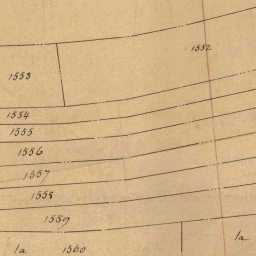 1552
1553
1554
1555
1556
1557
1558
1559
1a 1560 1a